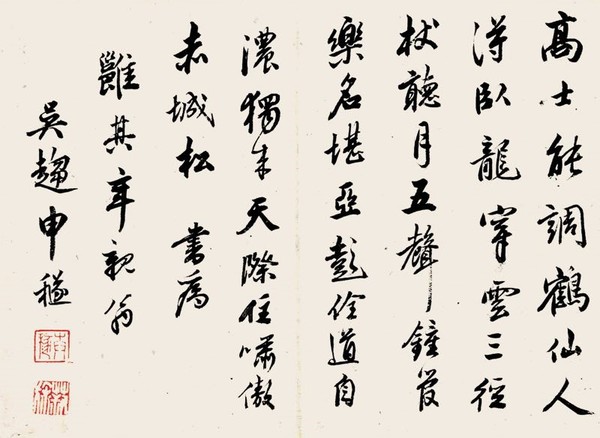 高士能調鶴仙人
得臥龍穿雲三徑
杖聽月五聲鐘管
樂名堪亞彭佺道自
濃獨來天際住嘯傲
赤城松 書為
雝其年親翁
吳趨申穟